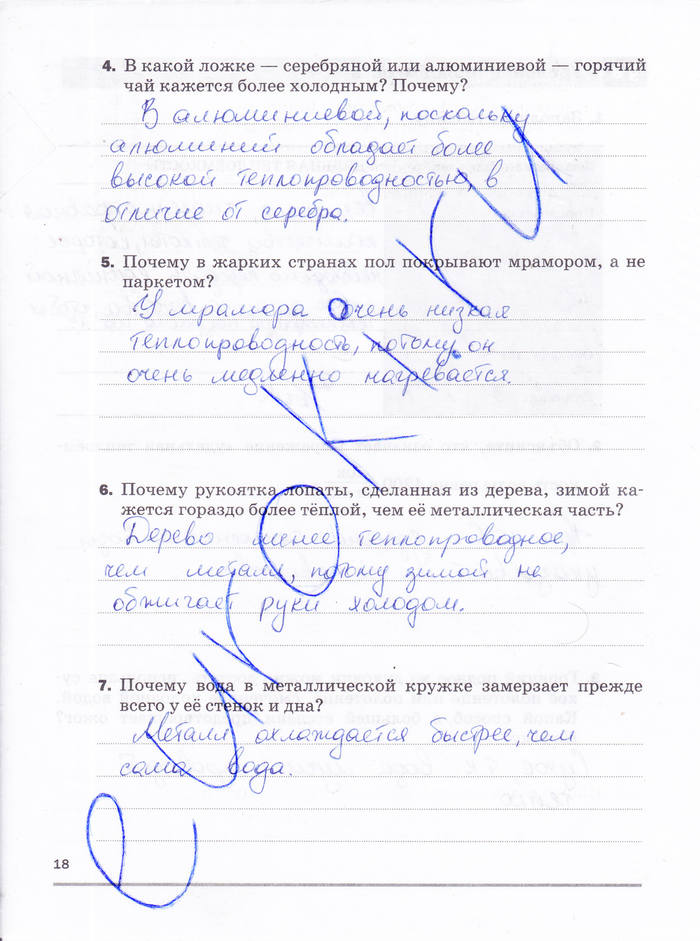 4. В какой ложке — серебряной или алюминиевой — горячий
чай кажется более холодным? Почему?
В алюминиевой, поскольку
алюминий обладает более
высокой теплопроводностью, в
отличие от серебра.
5. Почему в жарких странах пол покрывают мрамором, а не
паркетом?
У мрамора очень низкая
теплопроводность, потому он
очень медленно нагревается.
6. Почему рукоятка лопаты, сделанная из дерева, зимой ка-
жется гораздо более тёплой, чем её металлическая часть?
Дерево менее теплопроводное,
чем металл, потому зимой не
обжигает руки холодом.
7. Почему вода в металлической кружке замерзает прежде
всего у её стенок и дна?
Металл охлаждается быстрее, чем
сама вода.
18